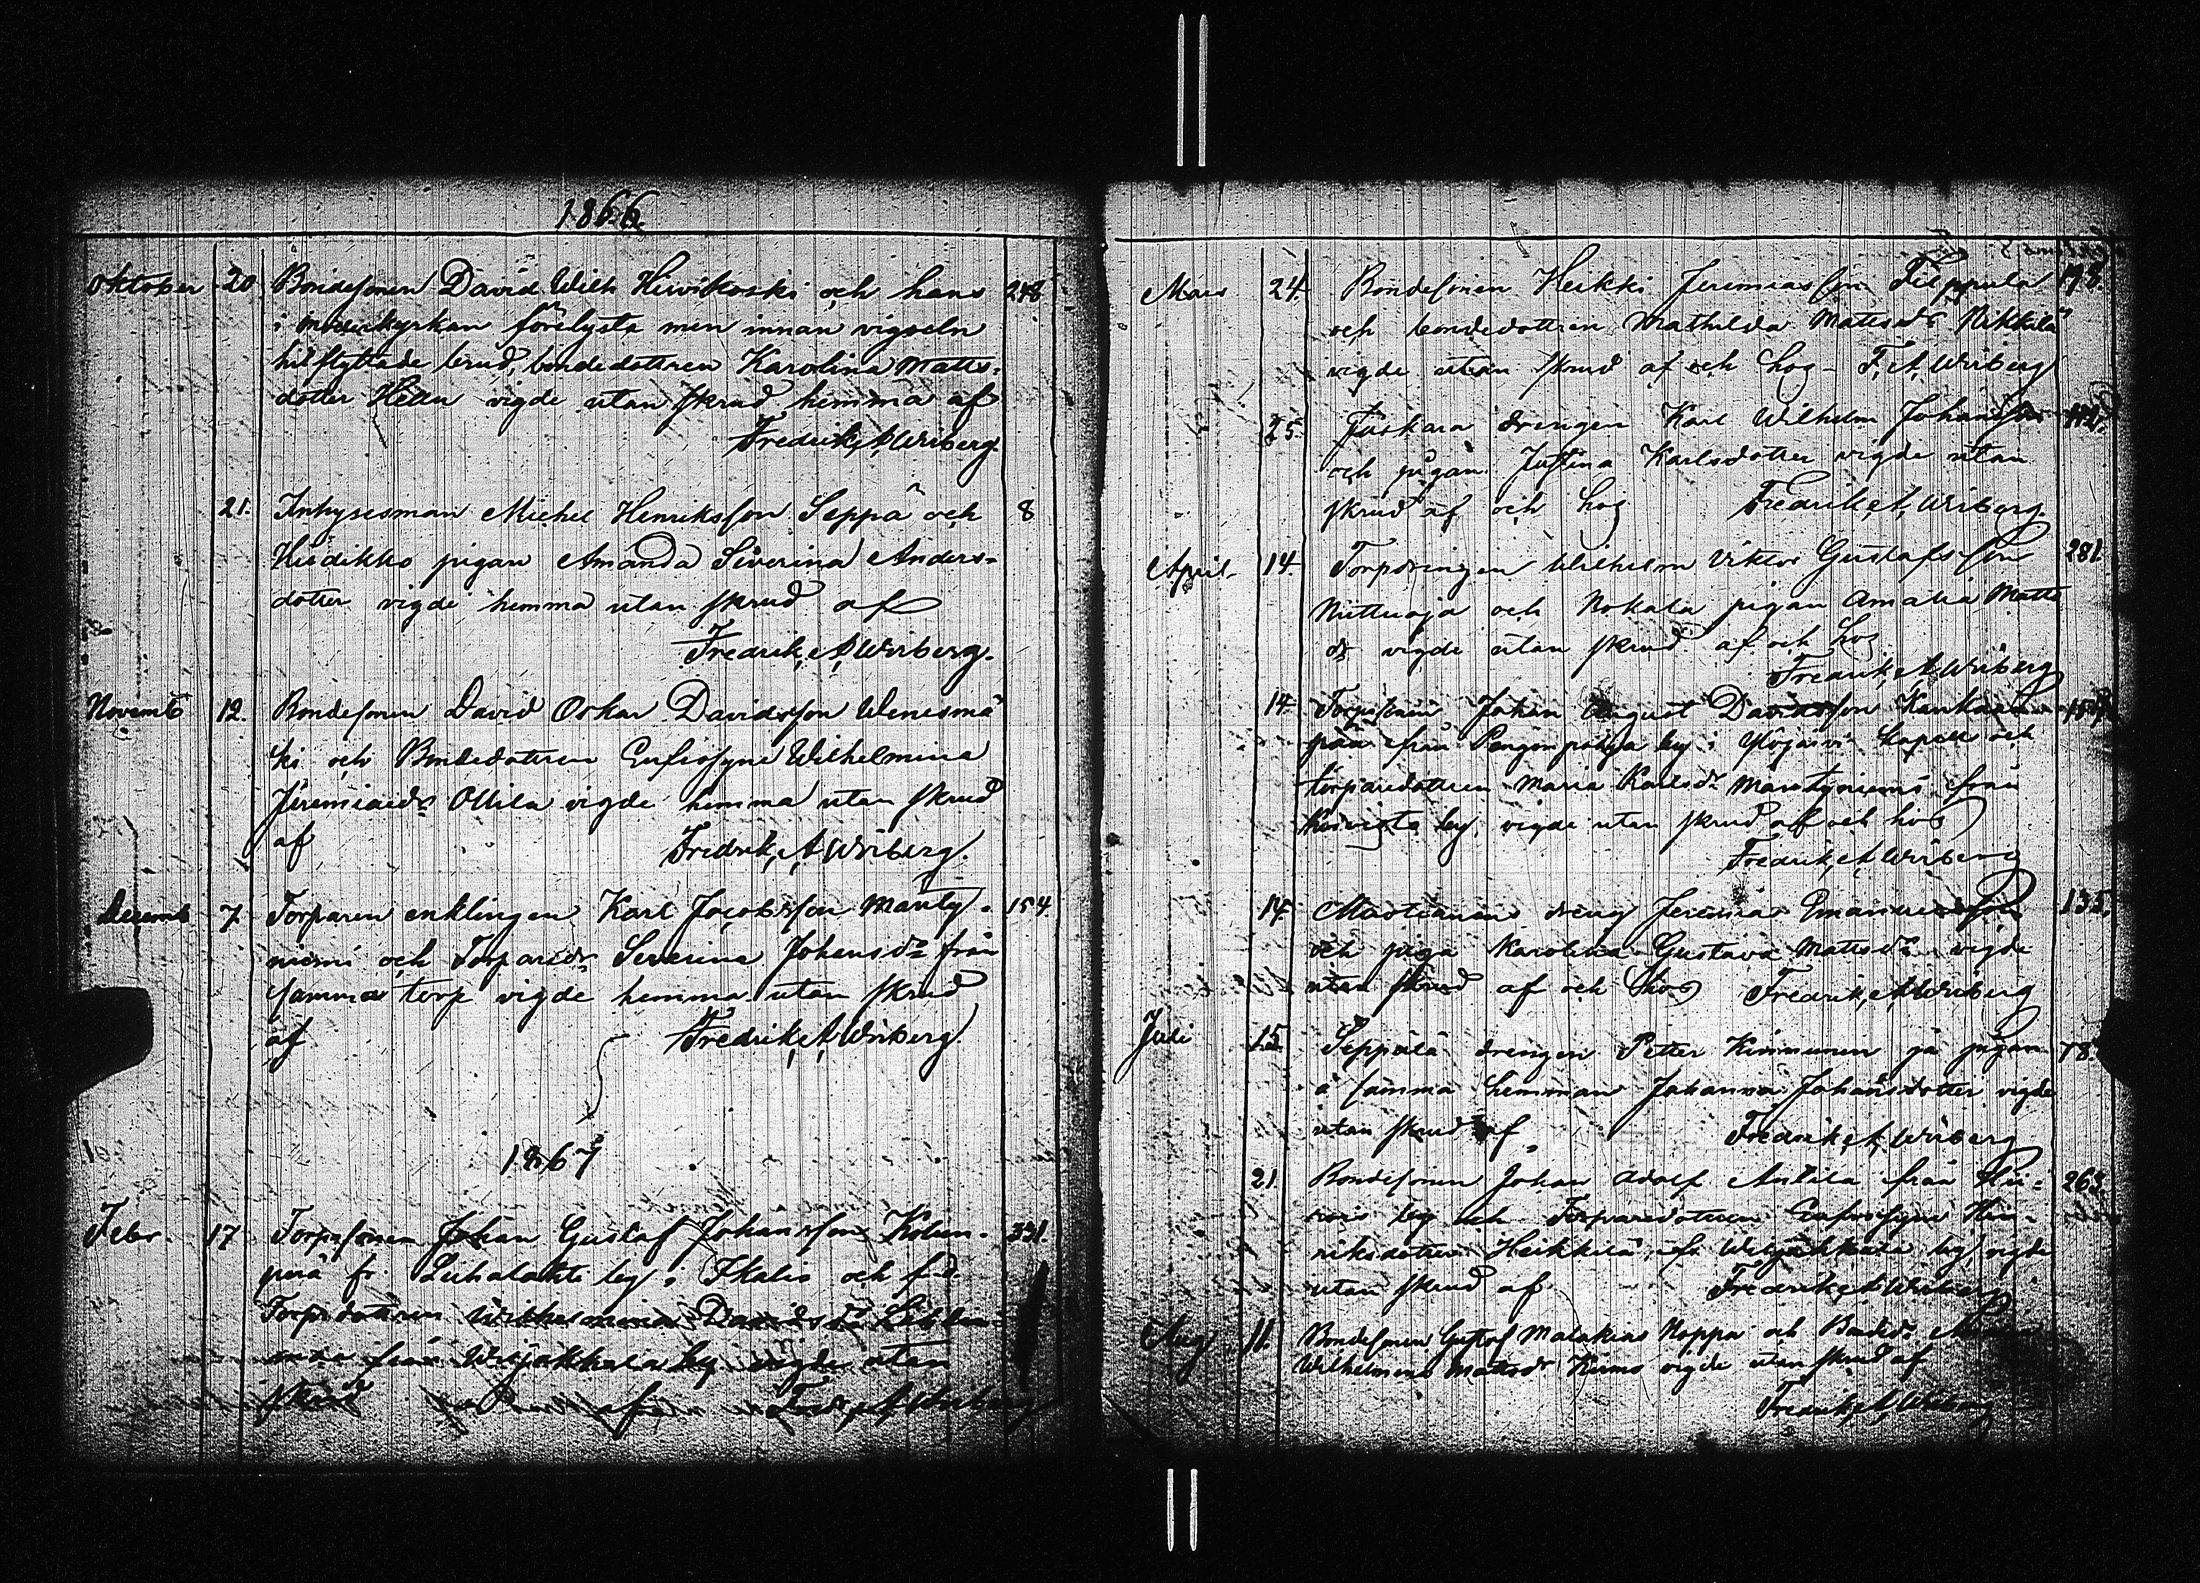 1866
Oktober 20 Bondesonen David Wilh Hirvikoski och hans 248
i moderkyrkan förelysta men innan vigseln
hitflyttade brud, bondedottren Karolina Matts-
dotter Heln vigde utan skrud hemma af
Fredrik A Wriberg.
21. Inhysesman Michel Henriksson Seppä och 8
Hirdikko pigan Amanda Siverina Anders-
dotter vigde hemma utan skrud af
Fredrik, A, Wriberg.
Novemb 12. Bondesonen David Oskar Davidsson Wenesmä
ki och Bondedottren Eufrosyne Wilhelmina
Jeremiaedr Ollila vigde hemma utan skrud
af Fredrik, A Wriberg.
Decemb 7. Torparen enklingen Karl Jacobsson Mänty- 154
niemi och Torparedr Severina Johansdr från
samma torp vigde hemma utan skrud
af Fredrik, A Wriberg
1867
Febr. 17 Torpesonen Johan Gustaf Johansson Kolun- 331.
perä fr. Leihalahti by i Ikalis och
Torpdottren Wilhelmina Davidsdr
från Wiljakkala by vigde utan
skrud af Fred, A, Wriberg
Mars 24. Bondesonen Heikki Jeremiasson Filppula 198.
och bondedottren Mathilda Mattsdr Rikkilä
vigde utan skrud af och hos F, A, Wriberg
25. drengen Karl Wilhelm Johansson
och pigan Justina Karlsdotter vigde utan
skrud af och hos Fredrik, A, Wriberg.
April 14. Torpdrengen Wilhelm Viktor Gustafsson 281.
Nuttuoja och Nokala pigan Amalia Matts
dr vigde utan skrud af och hos
Fredrik, A, Wriberg
14 Torpsonen Johan August Davidsson
pää från Pengonpohja by i Ylöjärvi kapell och
torparedottren Maria Karlsdr Mäntyniemi från
by vigde utan skrud af och hos
Fredrik, A, Wriberg
14 dreng Jeremias Emanuelsson 135.
och piga Karolina Gustava Mattsdr vigde
utan skrud af och hos Fredrik, A Wriberg
Juli 15. Seppälä drengen Petter Kinnunen jä pigan 78.
å samma hemman Johanna Johansdotter vigde
utan skrud af Fredrik, A, Wriberg
21. Bondesonen Johan Adolf Anttila från 263.
by och Torparedottren Eufrosyne Hen-
riksdotter Heikkilä fr Wiljakkala by vigde
utan skrud af Fredrik, A Wriberg
Aug 11. Bondesonen Gustaf Malakias Noppa och Bondedr
Wilhelmina Mattsdr vigde utan skrud af
Fredrik, A, Wriberg